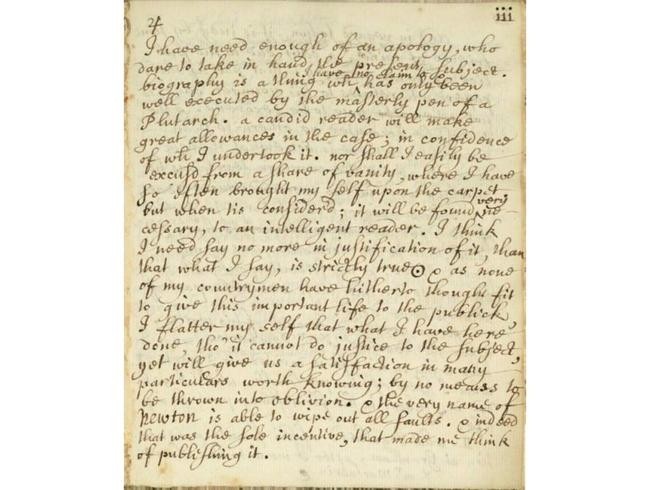 4
iii
I have need enough of an apology, who
dare to take in hand, the present subject.
have no claim to so
biography is a thing wh has only been
well executed by the masterly pen of a
Plutarch. a candid reader will make
great allowances in the case; in confidence
of wh I undertook it. nor shall I easily be
excusd from a share of vanity, where I have
so often brought my self upon the carpet
very
but when tis considerd; it will be found ne-
cessary, to an intelligent reader. I think
I need say no more in justification of it, than
that what I say, is strictly true☉. & as none
of my countrymen have hitherto thought fit
to give this important life to the publick
I flatter my self that what I have here
done, tho' it cannot do justice to the subject
yet will give us a satisfaction in many
particulars worth knowing; by no means to
be thrown into oblivion. & the very name of
Newton is able to wipe out all faults. & indeed
that was the sole incentive, that made me think
of publishing it.